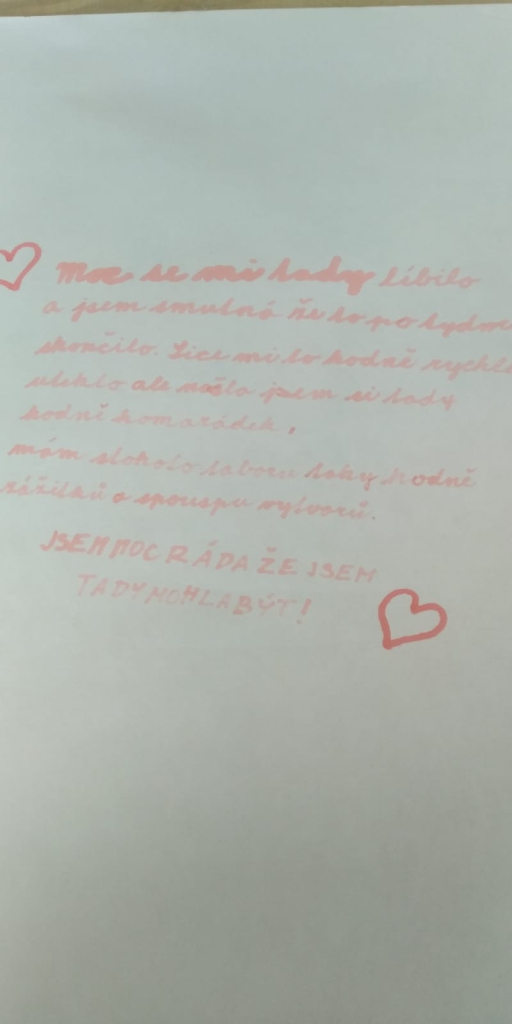 Moc se mi tady líbilo
a jsem smutná že to po týdnu
skončilo. Sice mi to hodně rychle
uteklo ale našla jsem si tady
hodně kamarádek.
mám z tohoto taboru taky hodně
zážitků a spouspu výtvorů.
JSEM MOC RÁDA ŽE JSEM
TADY MOHLA BÝT!